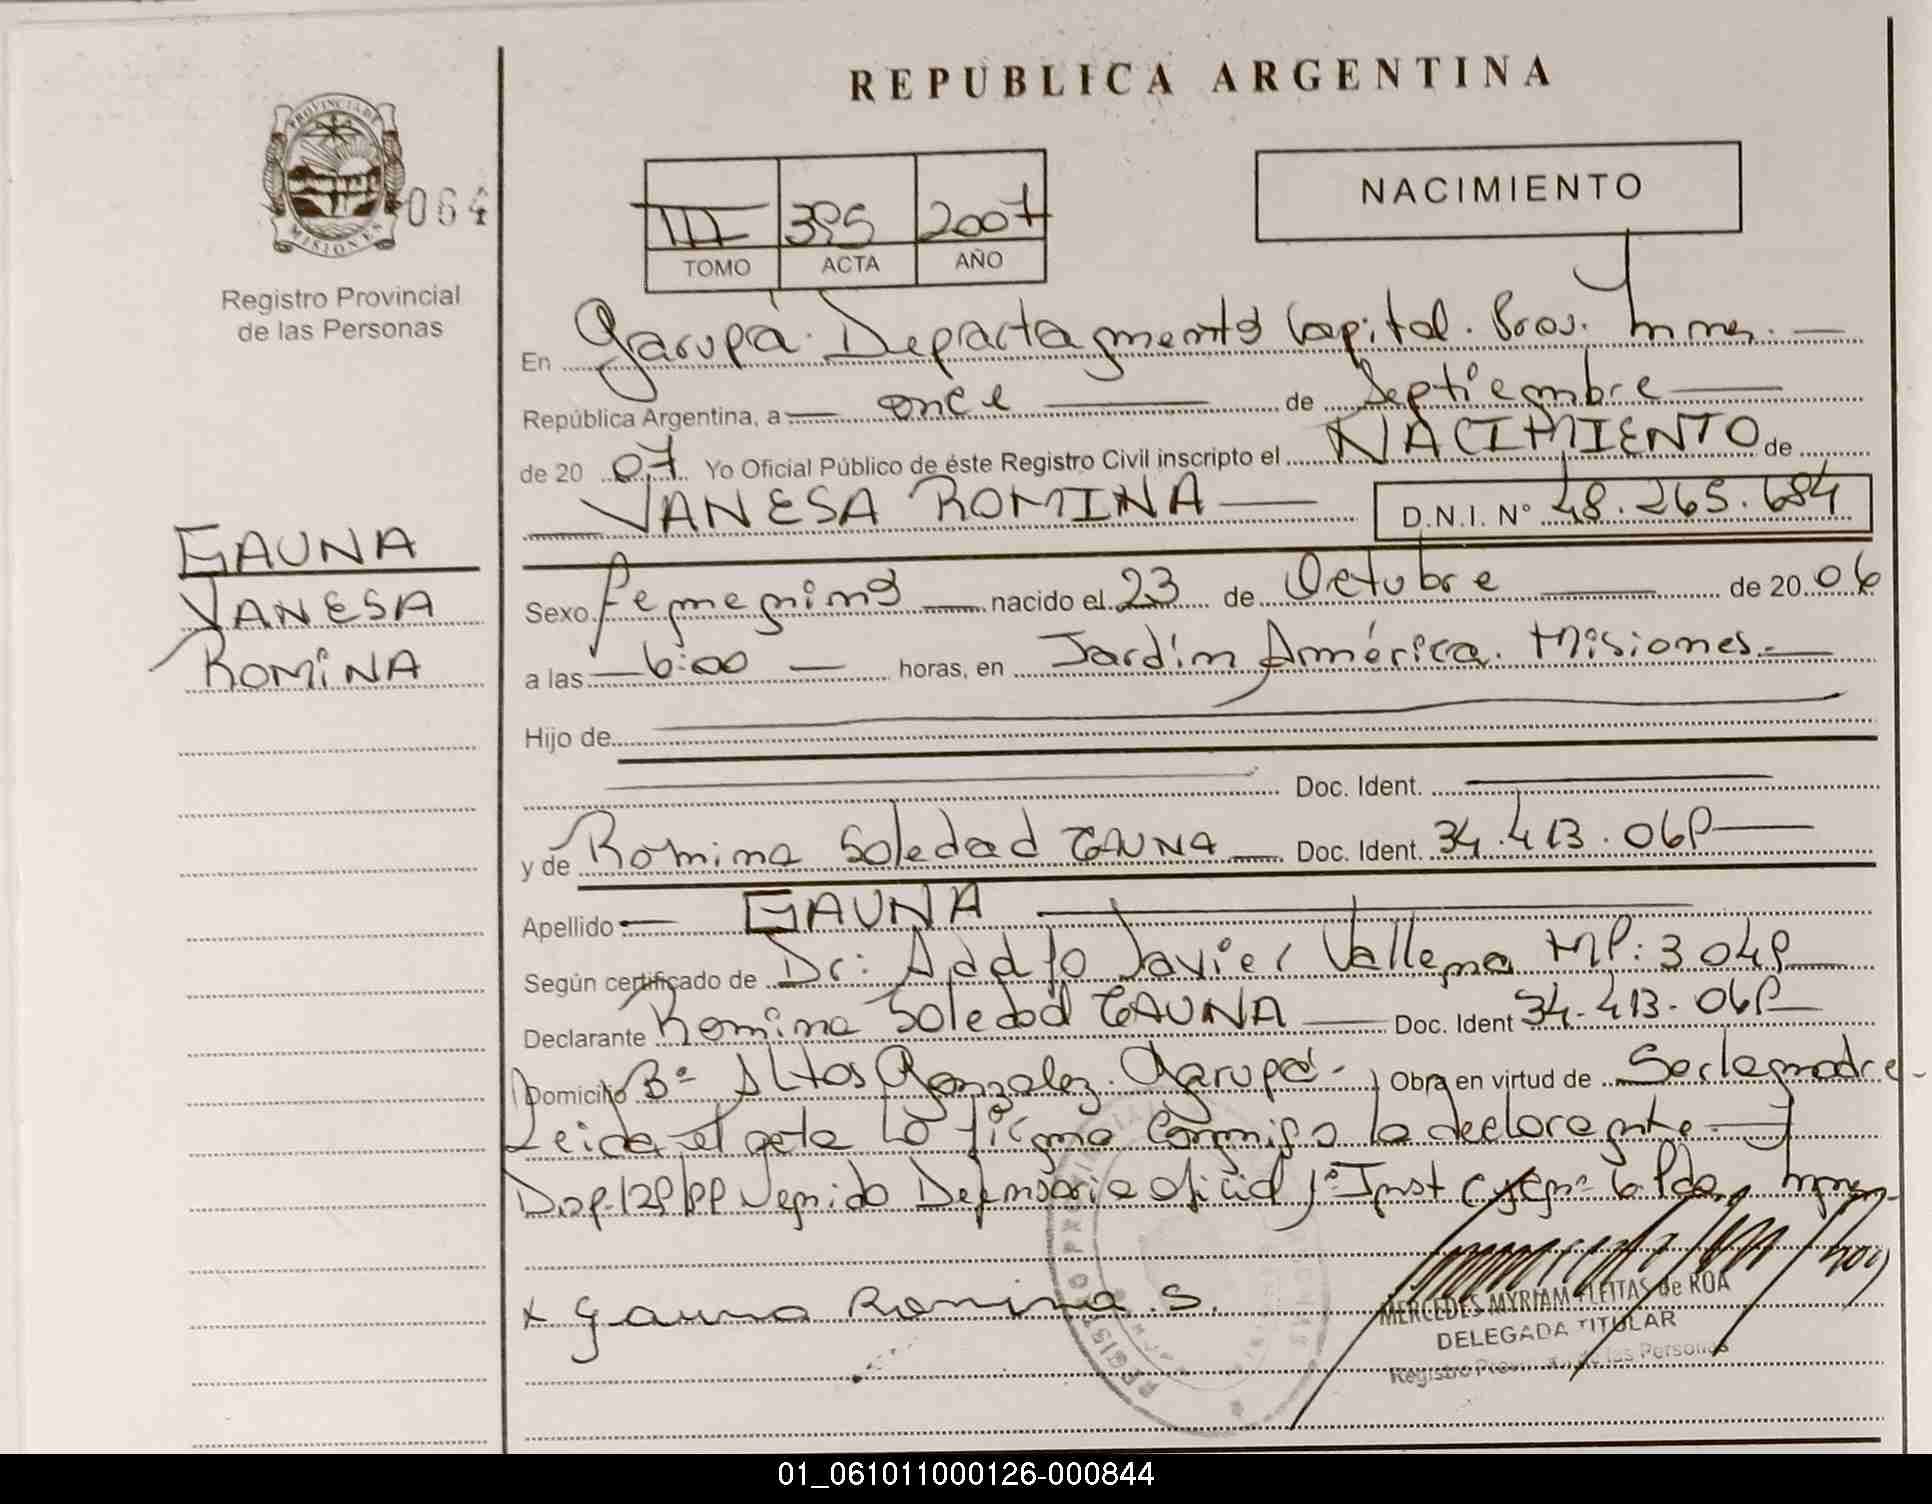 REPUBLICA ARGENTINA
PROVINCIA DE
MISIONES
064
Registro Provincial
de las Personas
NACIMIENTO
III 395 2007
TOMO ACTA AÑO
En Garupá. Departamento Capital. Prov. Mnes.
República Argentina, a once de Septiembre
de 20 07 Yo Oficial Público de éste Registro Civil inscripto el NACIMIENTO de
VANESA ROMINA D.N.I. N° 48.265.684
GAUNA
VANESA
ROMINA
Sexo femenino nacido el 23 de Octubre de 20 06
a las 6:00 horas, en Jardín América. Misiones.
Hijo de
Doc. Ident.
y de Romina Soledad GAUNA Doc. Ident. 34.413.069
Apellido GAUNA
Según certificado de Dr: Adolfo Javier MP: 3049
Declarante Romina Soledad GAUNA Doc. Ident 34.413.069
Domicilio B° Altos Gonzalez. Garupá. Obra en virtud de Ser la madre.
Leída el acta la firma conmigo la declarante.
Venido Defensoria oficial 1° Inst
x Gauna Romina .S.
MERCEDES MYRIAM FLEITAS de ROA
DELEGADA TITULAR
Registro Provincial de las Personas
01_061011000126-000844